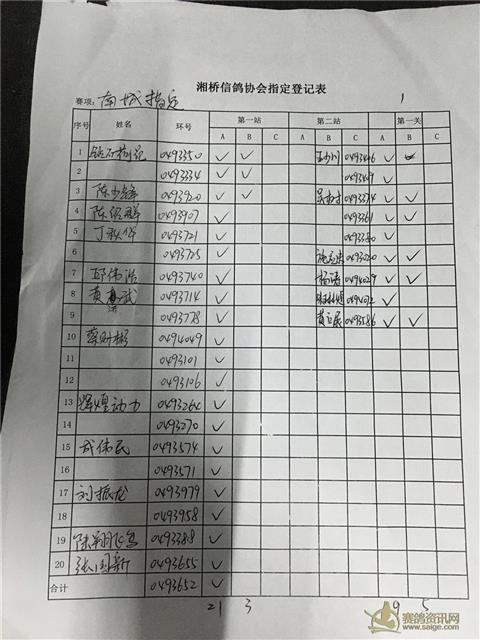 湘桥信鸽协会指定登记表
赛项：南城指定 1
序号 姓名 环号 第一站 第二站 第一关
A B C A B C A B C
1 0493350 ✓ ✓ 0493406 ✓ ✓
2 0493334 ✓ ✓ 0493409 ✓
3 陈少锋 0493920 ✓ ✓ 0493374 ✓ ✓
4 陈绍群 0493907 ✓ 0493361 ✓ ✓
5 丁秋华 0493721 ✓ 0493380 ✓
6 0493725 ✓ 0493020 ✓ ✓
7 邱伟浩 0493740 ✓ 杨涛 0494029 ✓ ✓
8 黄武 0493714 ✓ 0494012 ✓
9 0493778 ✓ 0493586 ✓ ✓
10 蔡财彬 0494049 ✓
11 0493101 ✓
12 0493106 ✓
13 辉煌动力 0493264 ✓
14 0493270 ✓
15 成伟民 0493574 ✓
16 0493571 ✓
17 刘振龙 0493979 ✓
18 0493958 ✓
19 陈翔飞鸽 0493388 ✓
20 张国新 0493655 ✓
合计 0493652 ✓
21 3 9 5
赛鸽资讯网
www.saige.com